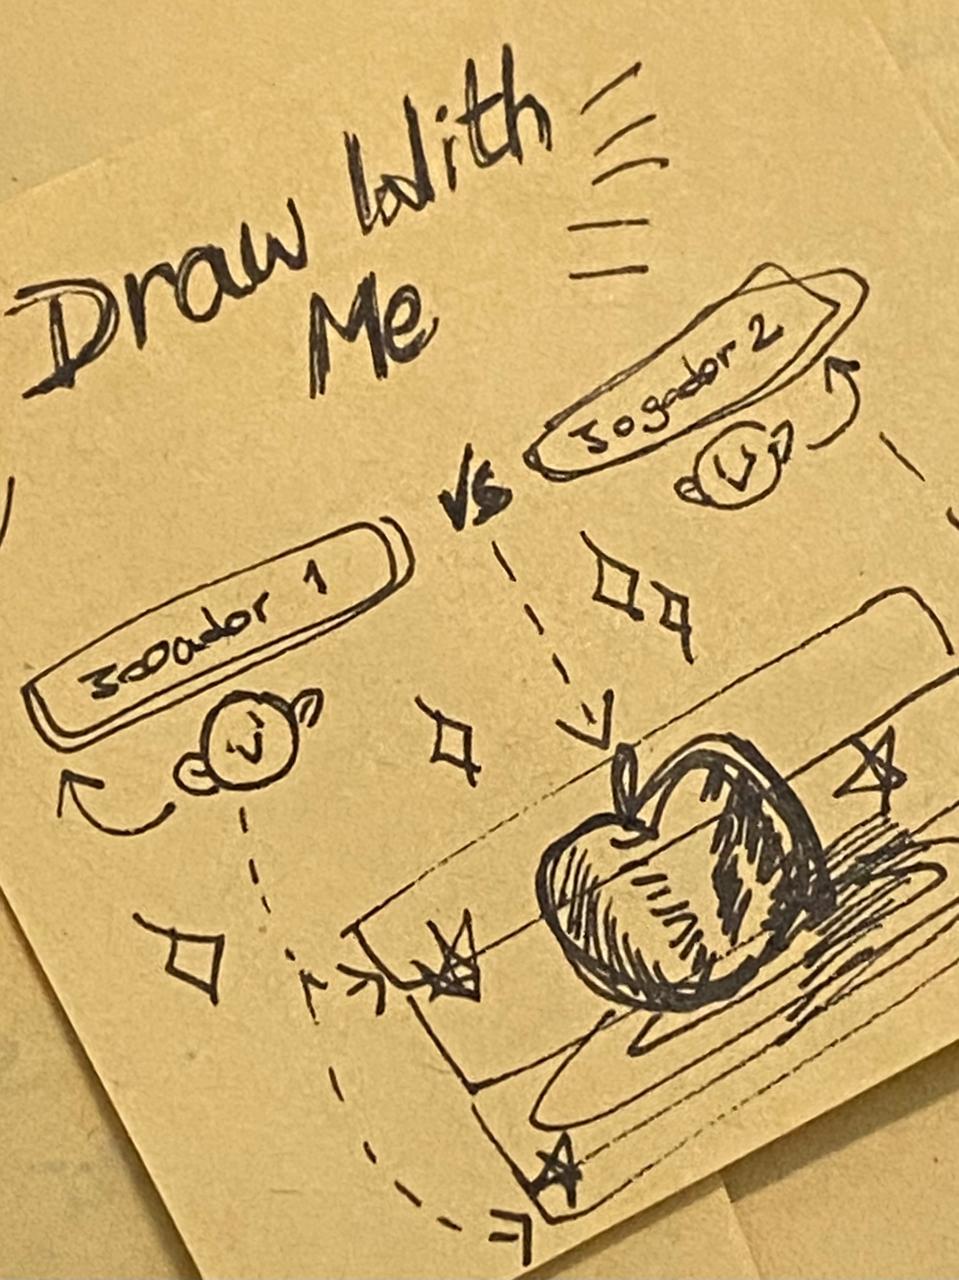 Draw With
Me
Jogador 2
Vs
Jogador 1